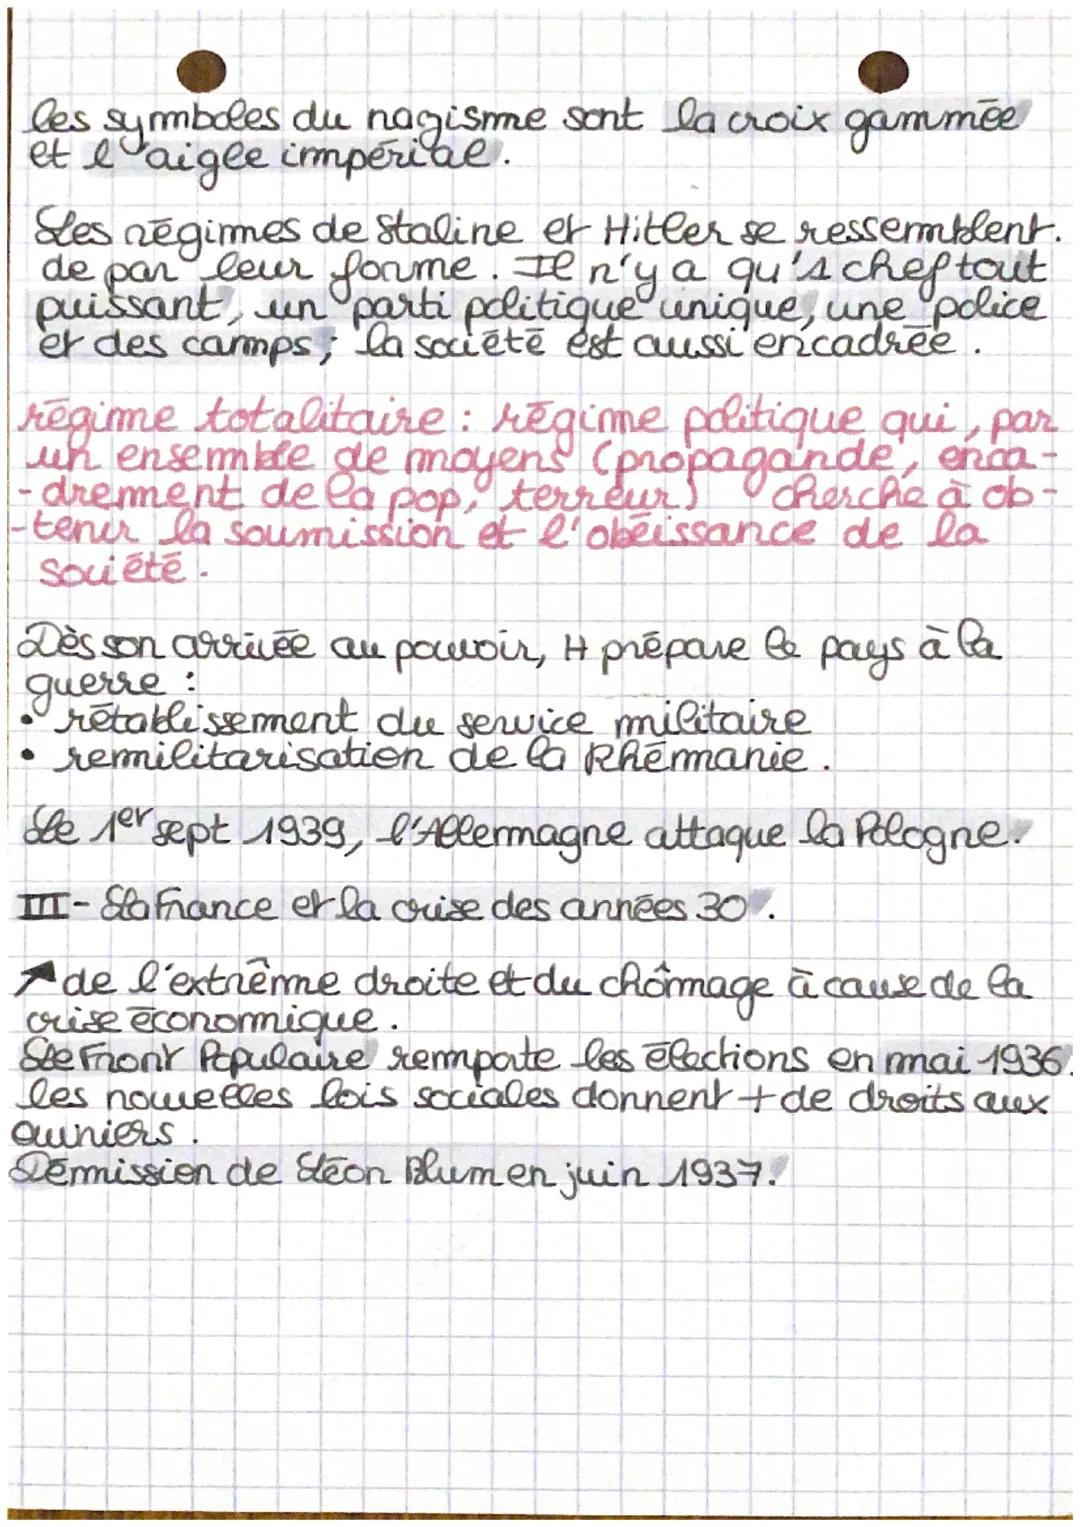 les symboles du nazisme sont la croix gammée
et l'aigle impérial.
Les régimes de Staline et Hitler se ressemblent.
de par leur forme. Il n'y a qu'1 chef tout
puissant, un parti politique unique, une police
et des camps; la société est aussi encadrée.
régime totalitaire : régime politique qui, par
un ensemble de moyens (propagande, enca-
-drement de la pop, terreur) cherche à ob-
-tenir la soumission et l'obéissance de la
société.
Dès son arrivée au pouvoir, H prépare le pays à la
guerre :
• rétablissement du service militaire
• remilitarisation de la Rhénanie.
Le 1er sept 1939, l'Allemagne attaque la Pologne.
III - La France et la crise des années 30.
↗ de l'extrême droite et du chômage à cause de la
crise économique.
Le Front Populaire remporte les élections en mai 1936.
les nouvelles lois sociales donnent + de droits aux
ouvriers.
Démission de Léon Blum en juin 1937.